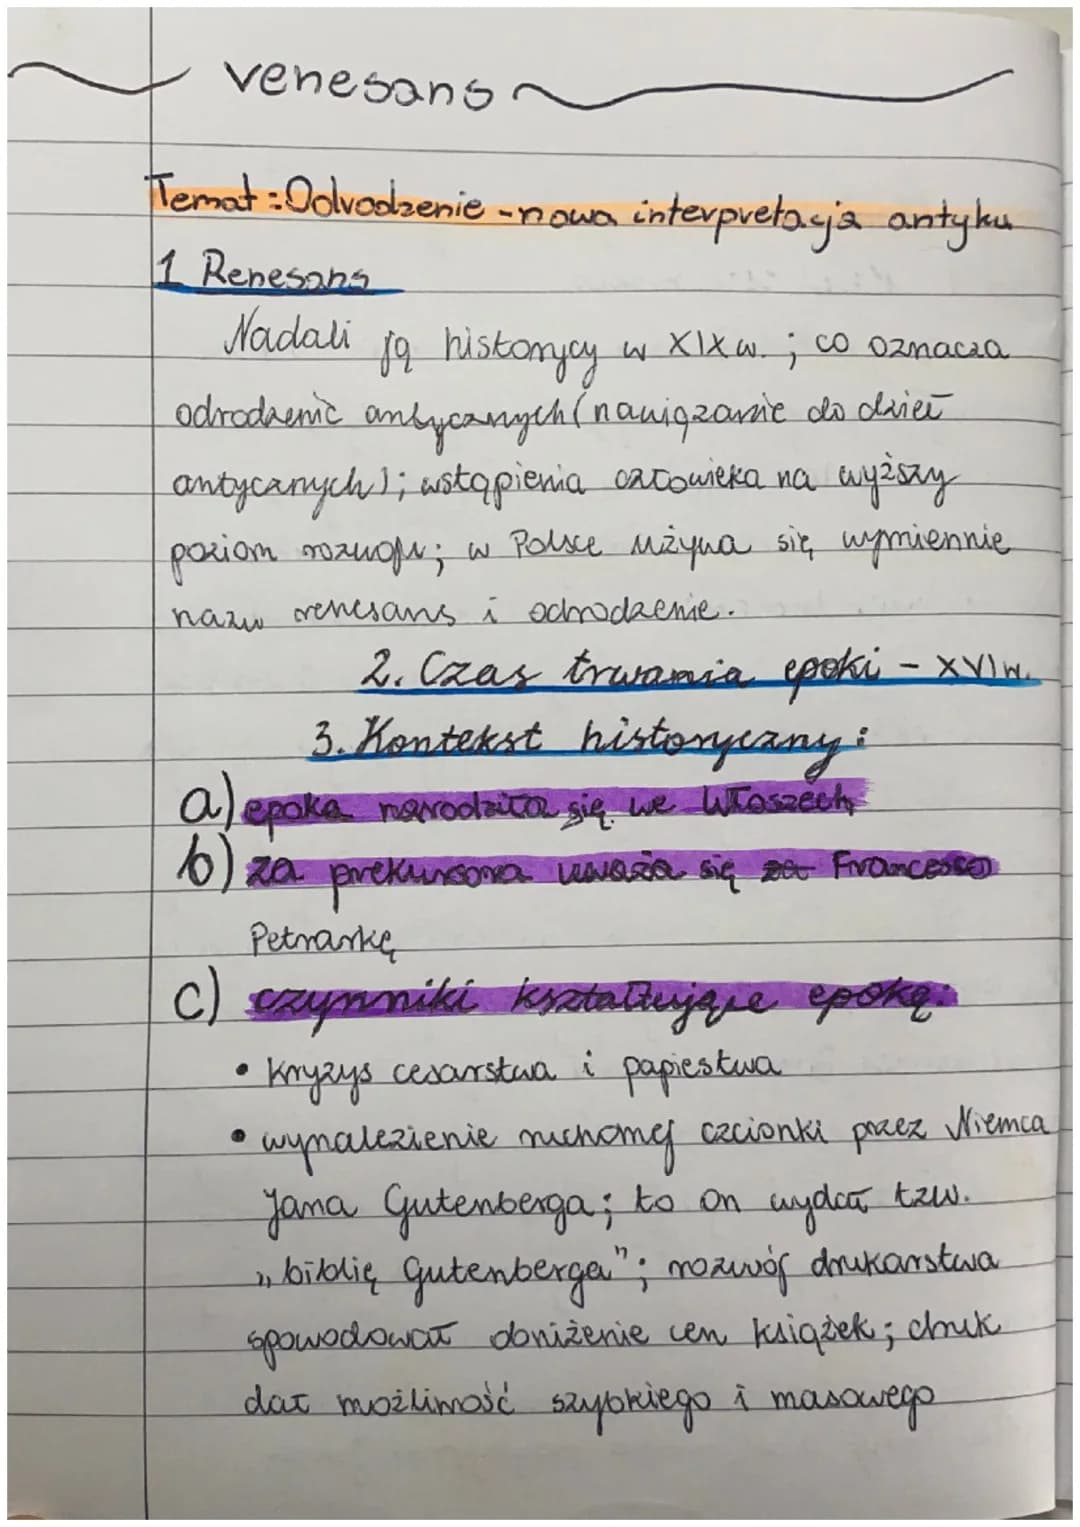 renesans
Temat: Odrodzenie - nowa interpretacja antyku
1 Renesans
Nadali ją historycy w XIX w. ; co oznacza
odrodzenie antycznych (nawiązanie do dzieł
antycznych); wstąpienia człowieka na wyższy
poziom rozwoju; w Polsce używa się wymiennie
nazw renesans i odrodzenie.
2. Czas trwania epoki - XVI w.
3. Kontekst historyczny:
a) epoka narodziła się we Włoszech
b) za prekursora uważa się za Francesco
Petrarkę
c) czynniki kształtujące epokę:
• kryzys cesarstwa i papiestwa
• wynalezienie ruchomej czcionki przez Niemca
Jana Gutenberga; to on wydał tzw.
„biblię Gutenberga"; rozwój drukarstwa
spowodował obniżenie cen książek; druk
dał możliwość szybkiego i masowego